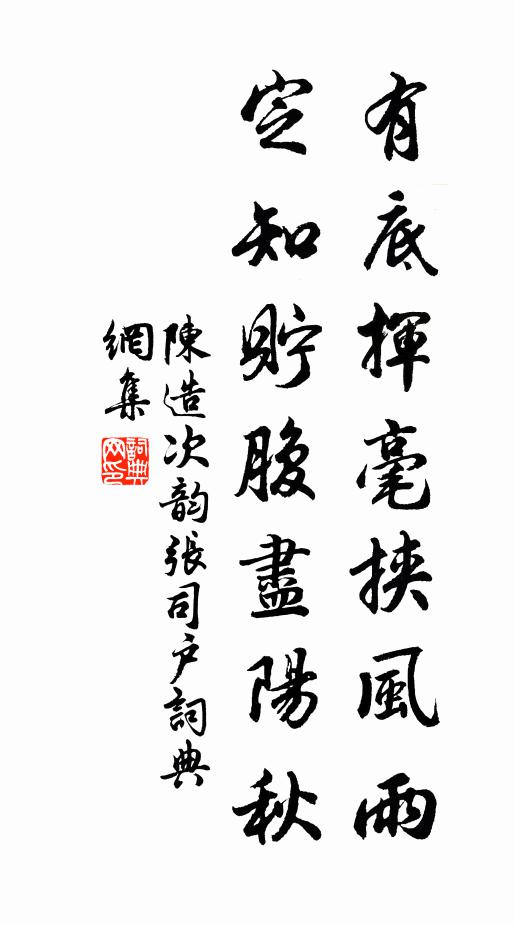 有底揮毫挾風雨
定知貯腹盡陽秋
陳造次韵張司户詞典
網集
詞典
网印